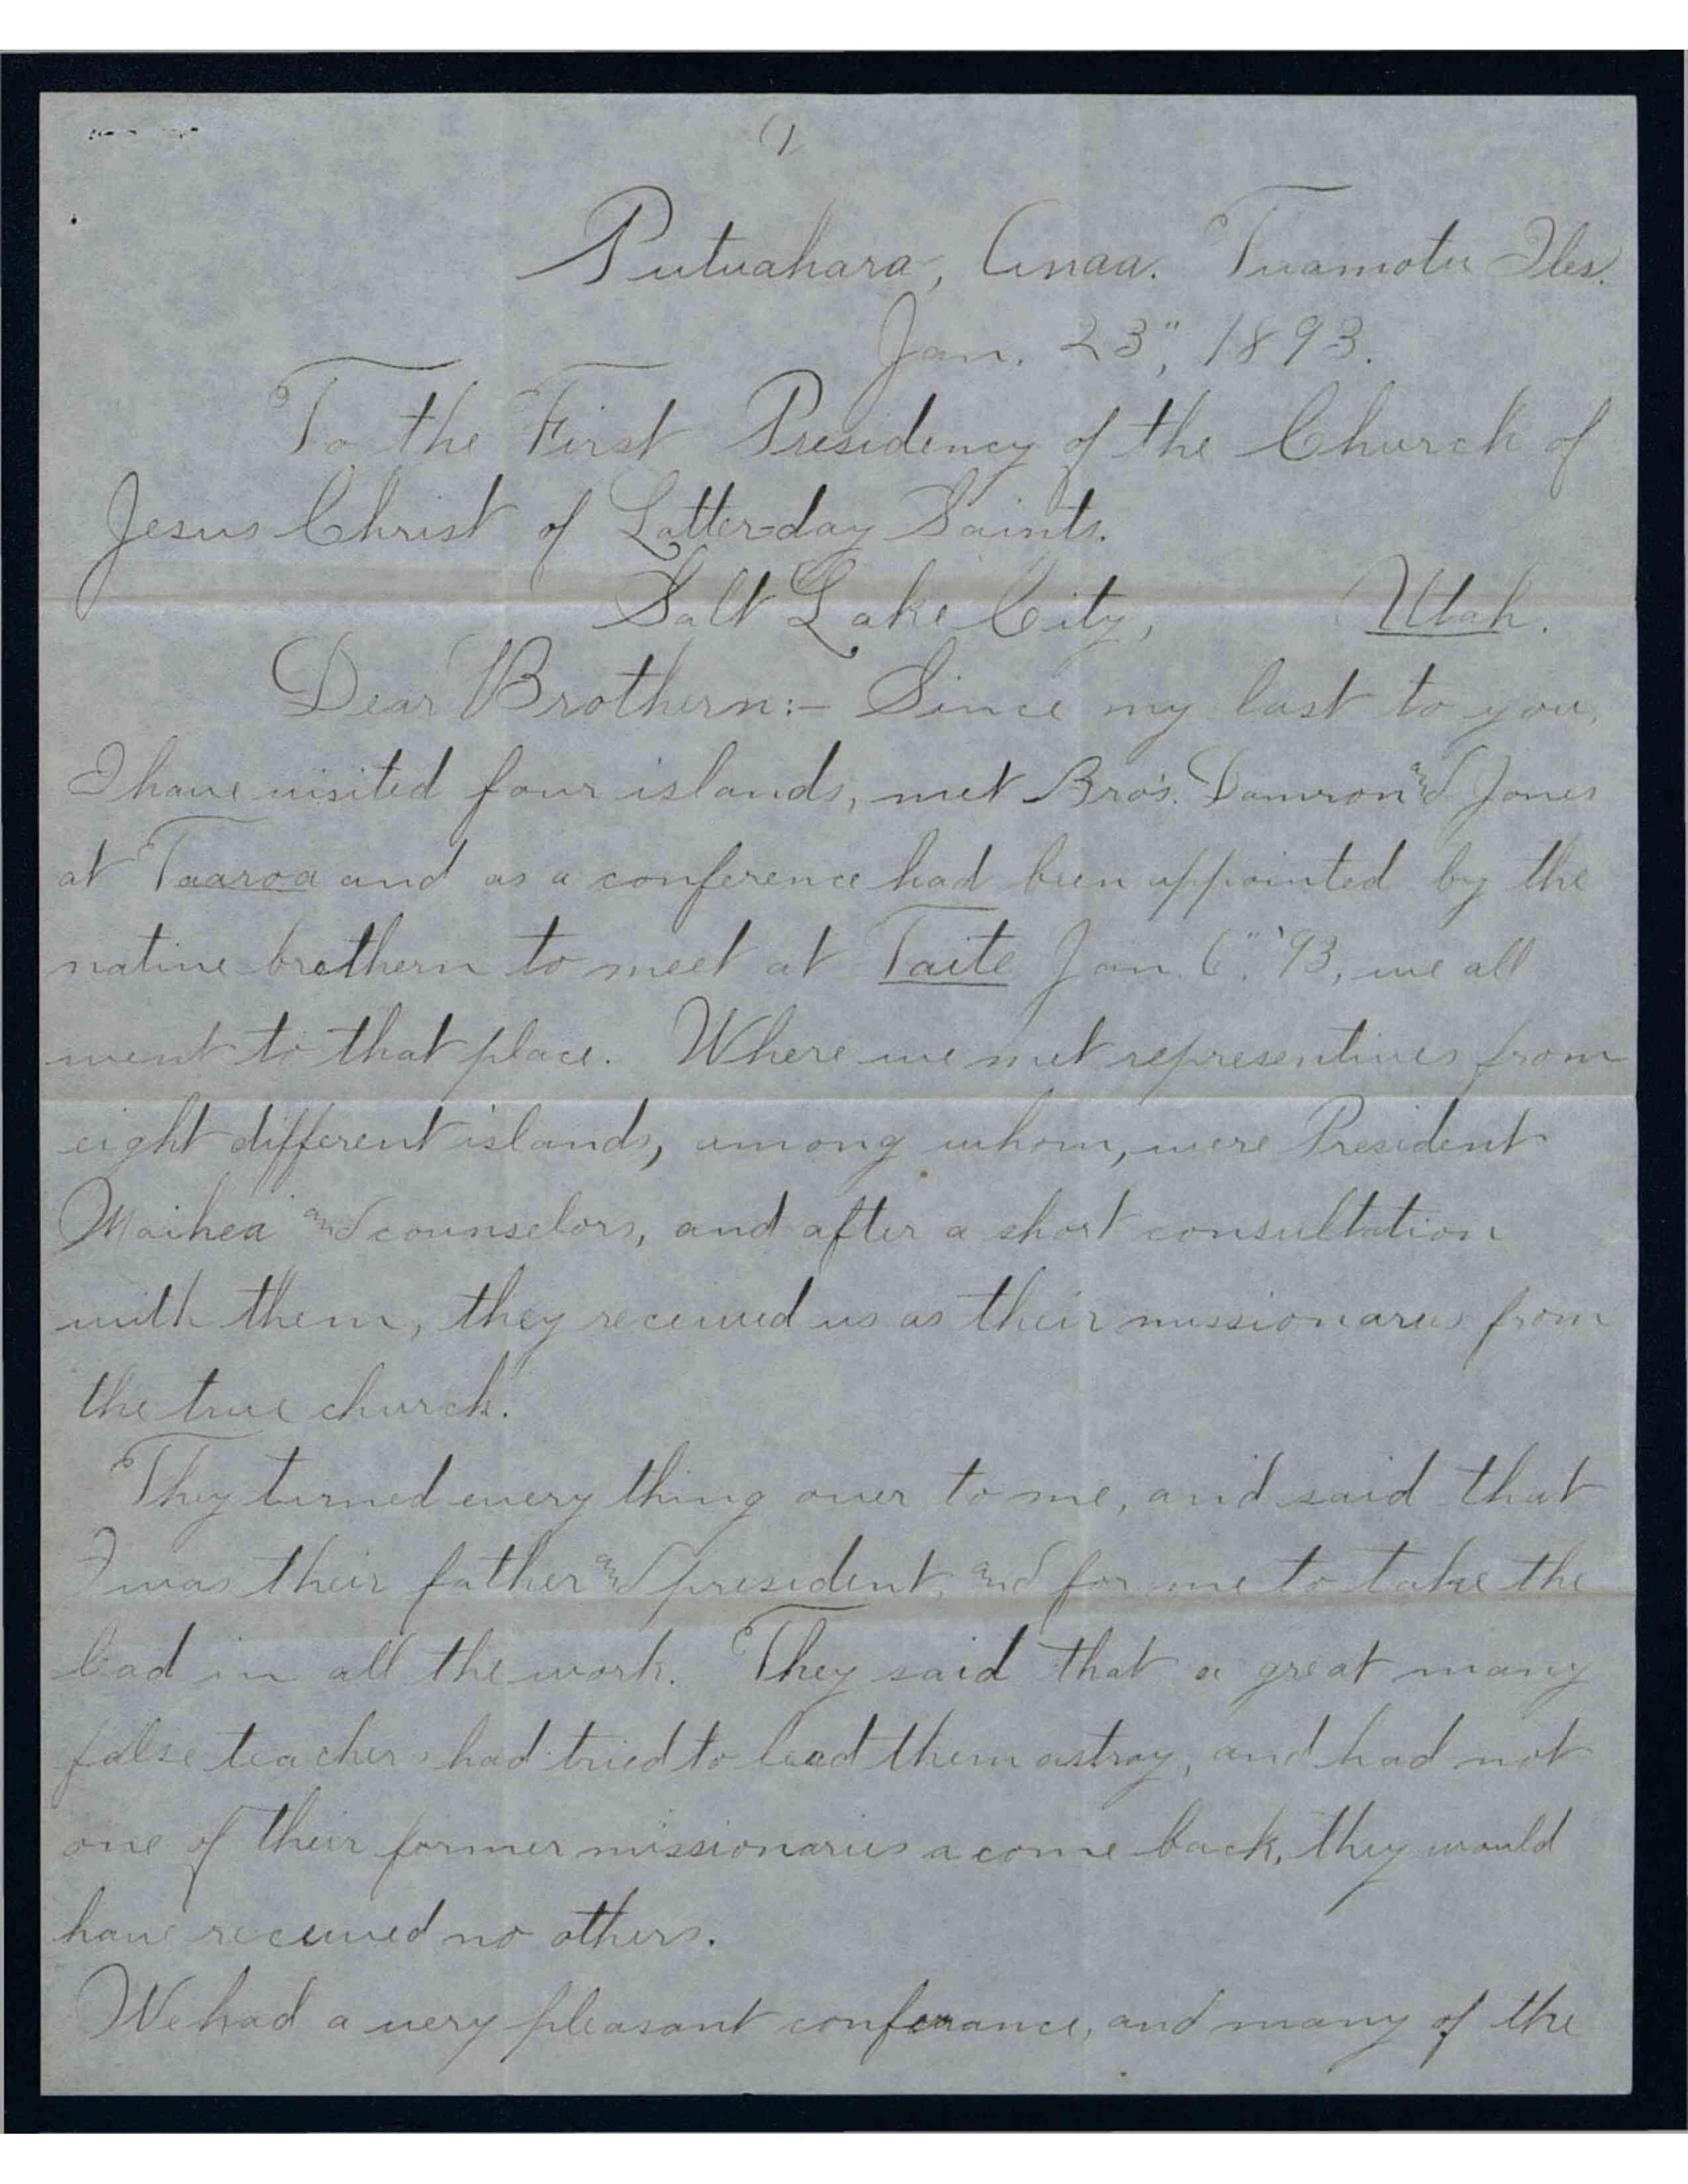 (1
Putuahara, Anaa. Tuamotu Iles.
Jan. 23", 1893.
To the First Presidency of the Church of
Jesus Christ of Latter-day Saints.
Salt Lake City, Utah.
Dear Brothern:- Since my last to you,
I have visited four islands, met Bro's. Damron and Jones
at Taaroa and as a conference had been appointed by the
native brethern to meet at Taite Jan. 6". '93, we all
went to that place. Where we met representives from
eight different islands, among whom, were President
Maihea and counselors, and after a short consultation
with them, they received us as their missionaries from
the true church.
They turned every thing over to me, and said that
I was their father and president, and for me to take the
lead in all the work. They said that a great many
false teachers had tried to lead them astray, and had not
one of their former missionaries a come back, they would
have received no others.
We had a very pleasant conferance, and many of the